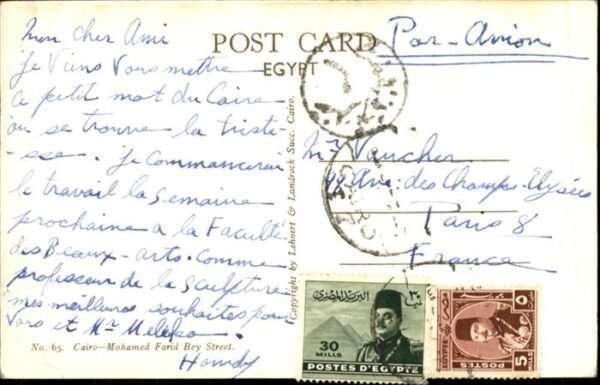 mon cher Ami
Je Viens Vous mettre
ce petit mot du Caire
ou se trouve la triste-
-sse. Je Commancerai
le travail la Semaine
prochaine a la Faculté
des Beaux-arts. Comme
professeur de la Sculpture
mes meilleures souhaites pour
Vous et Mr
Hamdy
No. 65. Cairo—Mohamed Farid Bey Street.
POST CARD
EGYPT
Copyright by Lehnert & Landrock Succ. Cairo.
Par-Avion
Mr Vaucher
Ave. des Champs-Elysées
Paris 8
France
البريد المصري
٣٠
30
MILLS
POSTES D'EGYPTE
٥
5
MILLS